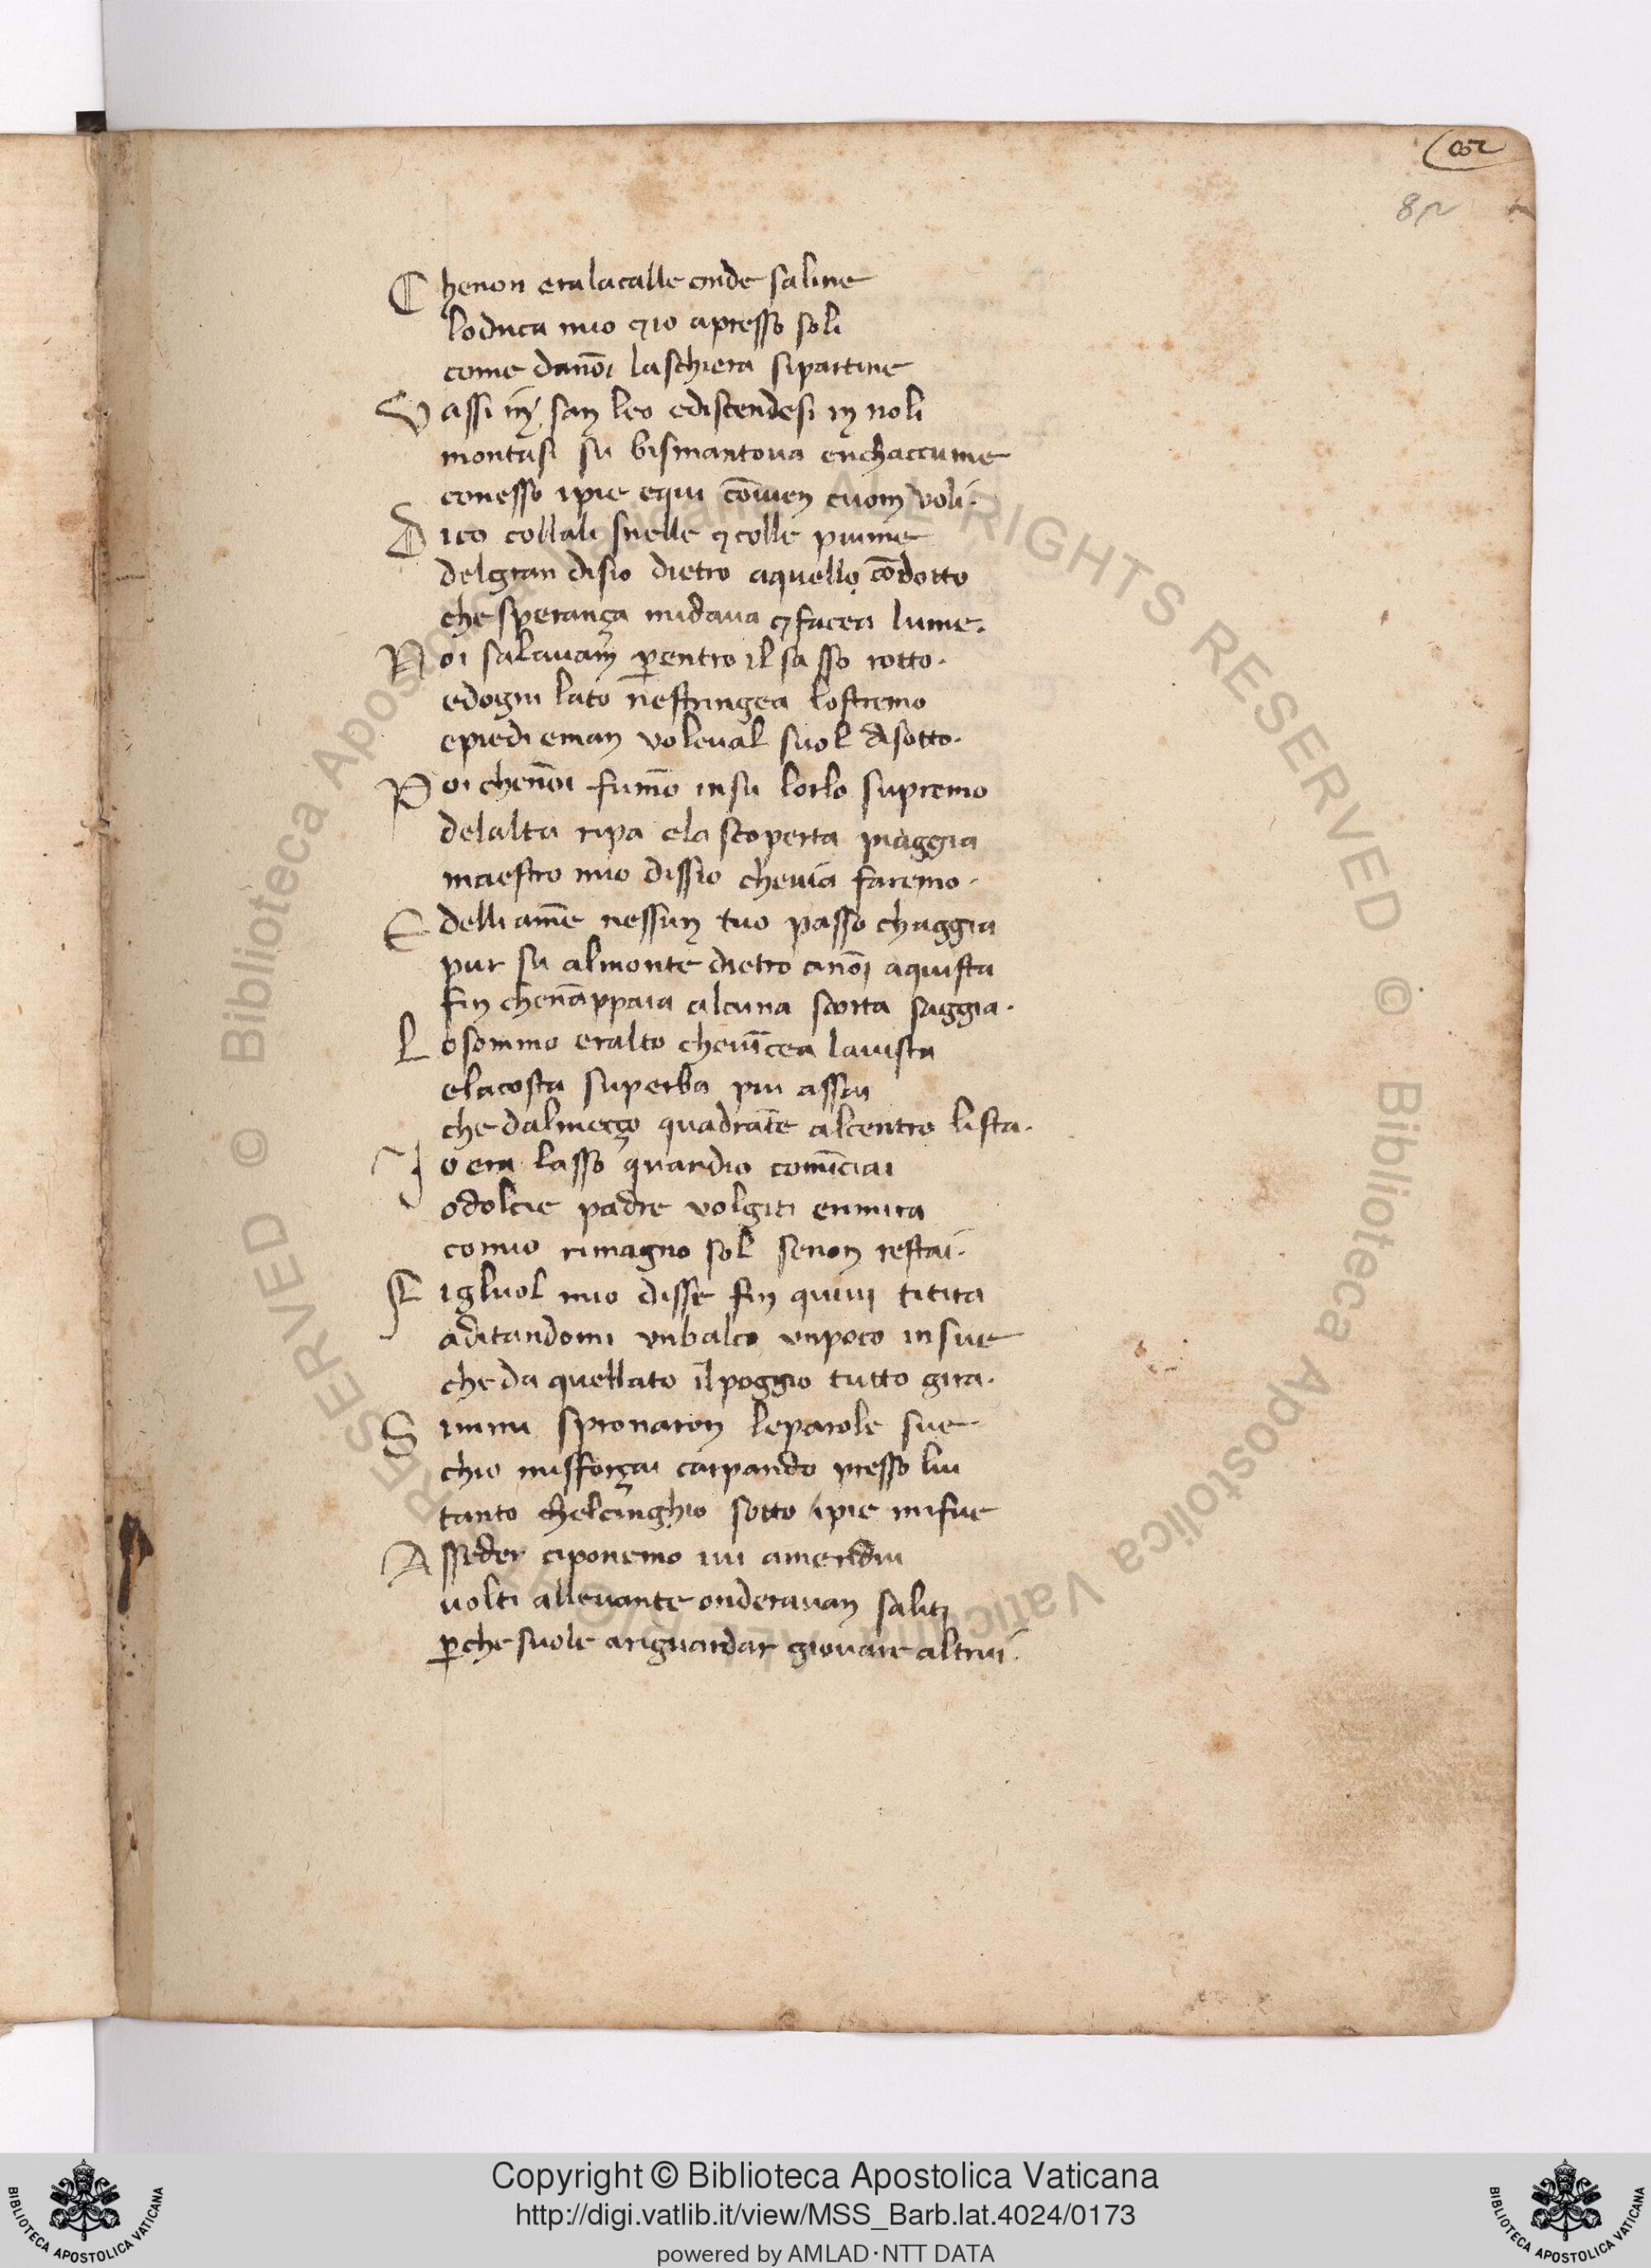 82
Chenon eralacalle onde saline
loduca mio ⁊io apresso soli
come danōi laschiera sipartine
Vassi iɴ san leo ediscendesi in noli
montasi su bismantoua enchaccume
conesso ipie equi cōuien cuom voli.
Dico collali snelle ⁊colle piume
delgran disio dietro aquello cōdotto
chesperança midaua ⁊facea lume.
Noi salauam ꝑentro il sasso rotto.
edogni lato nestringea lostremo
epiedi eman voleual suol disotto.
Poi chenōi fumo insu lorlo supremo
delalta ripa ela scoperta piaggia
maestro mio dissio cheuia faremo.
Edelli ame nessun tuo passo chaggia
pur su almonte dietro anōi aquista
fin chenāppaia alcuna scorta saggia.
Losommo eralto cheuīcea lauista
elacosta superba piu assai
che dalmeçço quadrāte alcentro lista.
Io era lasso quandio comīciai
odolcie padre volgiti enmira
comio rimagno sol senon restai.
Figluol mio disse fin quiui titira
aditandomi vnbalco vnpoco insue
che da quellato il poggio tutto gira.
Simmi spronaron leparole sue
chio misforçai carpando presso lui
tanto chelcinghio sotto ipie mifue
Asseder ciponemo iui amendui
uolti alleuante onderauan saliti
ꝑche suole ariguardar giouare altrui.
© Biblioteca Apostolica Vaticana ALL RIGHTS RESERVED © Biblioteca Apostolica Vaticana ALL RIGHTS RESERVED
Copyright © Biblioteca Apostolica Vaticana
http://digi.vatlib.it/view/MSS_Barb.lat.4024/0173
powered by AMLAD·NTT DATA
BIBLIOTECA APOSTOLICA VATICANA
BIBLIOTECA APOSTOLICA VATICANA